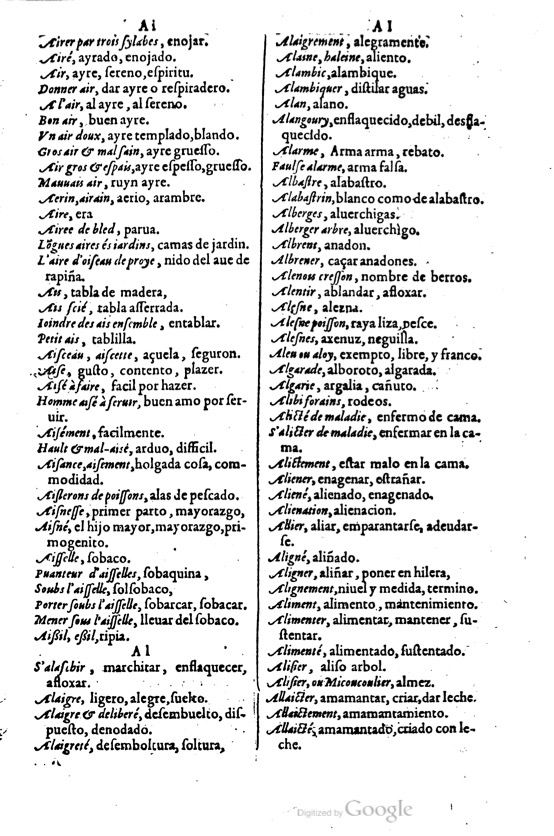 Ai
Airer par trois ſylabes, enojar.
Airé, ayrado, enojado.
Air, ayre, ſereno, eſpiritu.
Donner air, dar ayre o reſpiradero.
A l'air, al ayre, al ſereno.
Bon air, buen ayre.
Vn air doux, ayre templado, blando.
Gros air & mal ſain, ayre grueſſo.
Air gros & eſpais, ayre eſpeſſo, grueſſo.
Mauuais air, ruyn ayre.
Aerin, airain, aerio, arambre.
Aire, era
Airee de bled, parua.
Lõgues aires és iardins, camas de jardin.
L'aire d'oiſeau de proye, nido del aue de
rapiña.
Ais, tabla de madera,
Ais ſcié, tabla aſſerrada.
Ioindre des ais enſemble, entablar.
Petit ais, tablilla.
Aiſceau, aiſcette, açuela, ſeguron.
Aiſe, guſto, contento, plazer.
Aiſé à faire, facil por hazer.
Homme aiſé à ſeruir, buen amo por ſer-
uir.
Aiſément, facilmente.
Hault & mal-aisé, arduo, difficil.
Aiſance, aiſement, holgada coſa, com-
modidad.
Aiſlerons de poiſſons, alas de peſcado.
Aiſneſſe, primer parto, mayorazgo,
Aiſné, el hijo mayor, mayorazgo, pri-
mogenito.
Aiſſelle, ſobaco.
Puanteur d'aiſſelles, ſobaquina,
Soubs l'aiſſelle, ſolſobaco,
Porter ſoubs l'aiſſelle, ſobarcar, ſobacar.
Mener ſous l'aiſſelle, lleuar del ſobaco.
Aiſſil, eſſil, ripia.
A l
S'alaſchir, marchitar, enflaquecer,
afloxar.
Alaigre, ligero, alegre, ſuelto.
Alaigre & deliberé, deſembuelto, diſ-
pueſto, denodado.
Alaigreté, deſemboltura, ſoltura,
A l
Alaigrement, alegramente.
Alaine, haleine, aliento.
Alambic, alambique.
Alambiquer, diſtilar aguas.
Alan, alano.
Alangoury, enflaquecido, debil, desfla-
quecido.
Alarme, Arma arma, rebato.
Faulſe alarme, arma falſa.
Albaſtre, alabaſtro.
Alabaſtrin, blanco como de alabaſtro.
Alberges, aluerchigas.
Alberger arbre, aluerchigo.
Albrent, anadon.
Albrener, caçar anadones.
Alenou creſſon, nombre de berros.
Alentir, ablandar, afloxar.
Aleſne, alezna.
Aleſne poiſſon, raya liza, pesce.
Aleſnes, axenuz, neguilla.
Aleu ou aloy, exempto, libre, y franco.
Algarade, alboroto, algarada.
Algarie, argalia, cañuto.
Alibi forains, rodeos.
Alicté de maladie, enfermo de cama.
S'alicter de maladie, enfermar en la ca-
ma.
Alictement, eſtar malo en la cama.
Aliener, enagenar, eſtrañar.
Aliené, alienado, enagenado.
Alienation, alienacion.
Allier, aliar, emparantarſe, adeudar-
ſe.
Aligné, aliñado.
Aligner, aliñar, poner en hilera,
Alignement, niuel y medida, termino.
Aliment, alimento, mantenimiento.
Alimenter, alimentar, mantener, ſu-
ſtentar.
Alimenté, alimentado, ſuſtentado.
Aliſier, aliſo arbol.
Aliſier, ou Miconcoulier, almez.
Allaicter, amamantar, criar, dar leche.
Allaictement, amamantamiento.
Allaicté, amamantado, criado con le-
che.
Digitized by Google